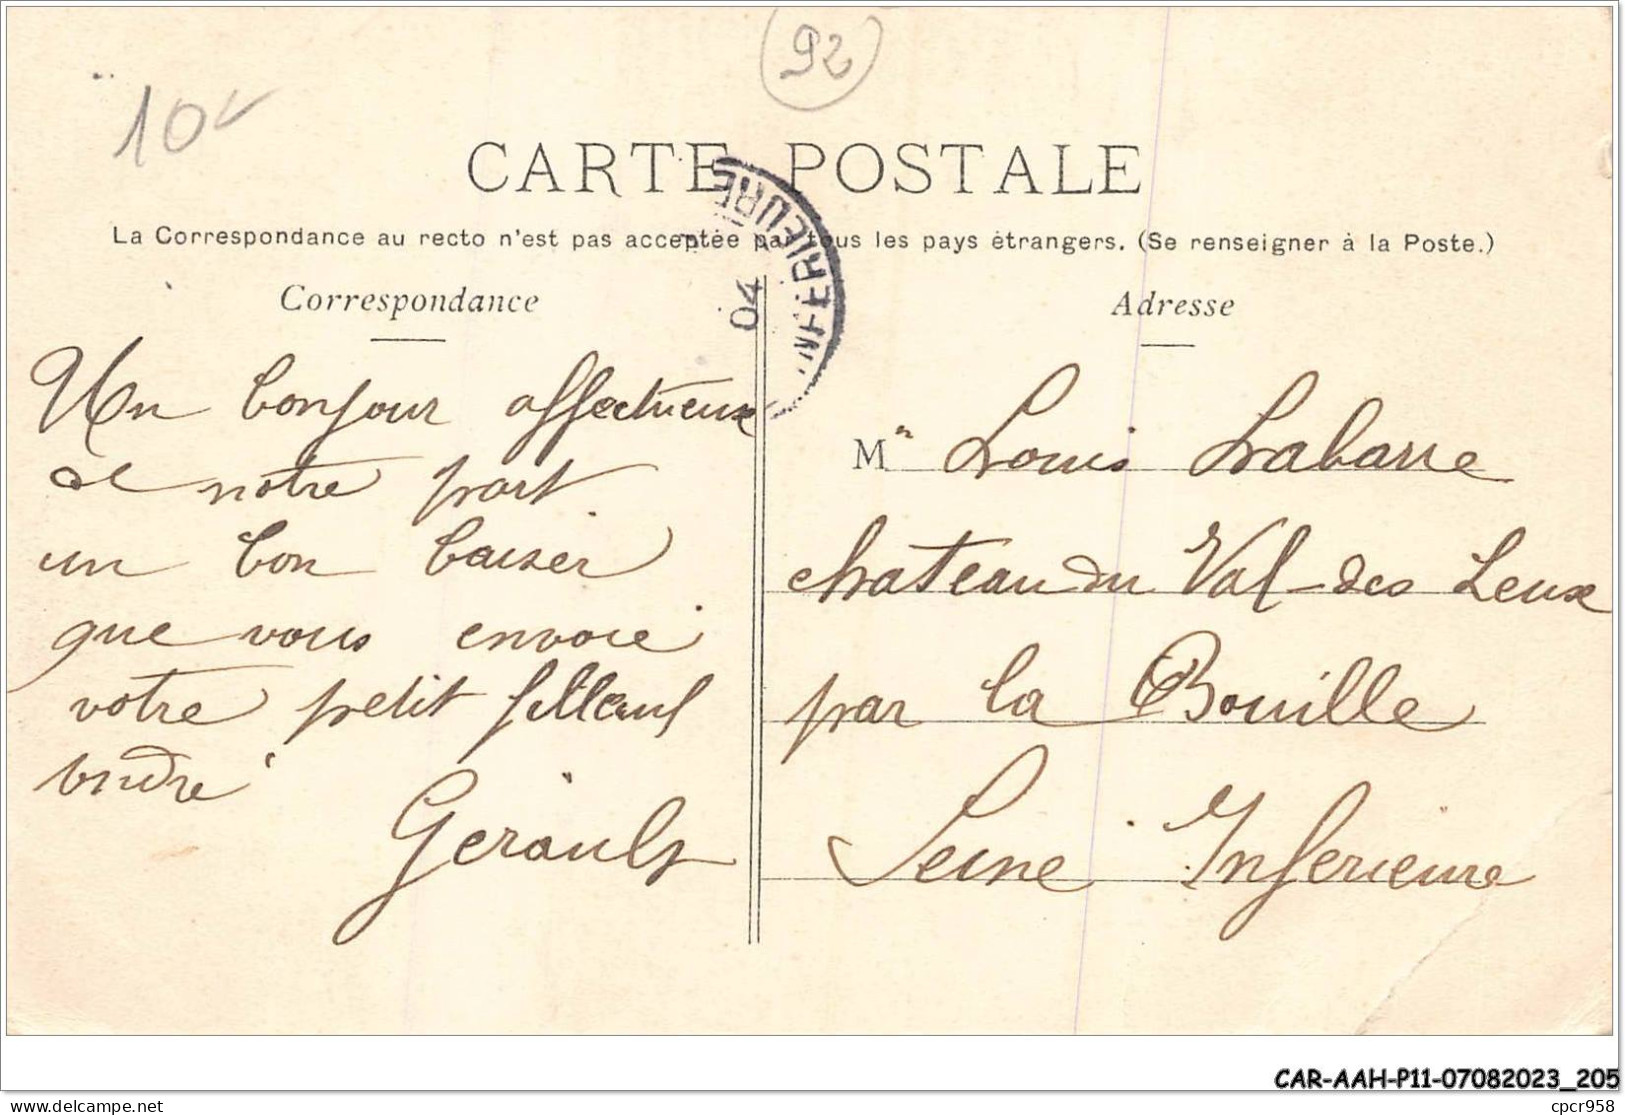 92
10
CARTE POSTALE
La Correspondance au recto n'est pas acceptée par tous les pays étrangers. (Se renseigner à la Poste.)
INFÉRIEURE
04
Correspondance
Un bonjour affectueux
de notre part
un bon baiser
que vous envoie
votre petit filleul
André
Gérault
Adresse
Mr Louis Labarre
chateau du Val-des Leux
par la Bouille
Seine Inferieure
CAR-AAH-P11-07082023_205
www.delcampe.net
cpcr958